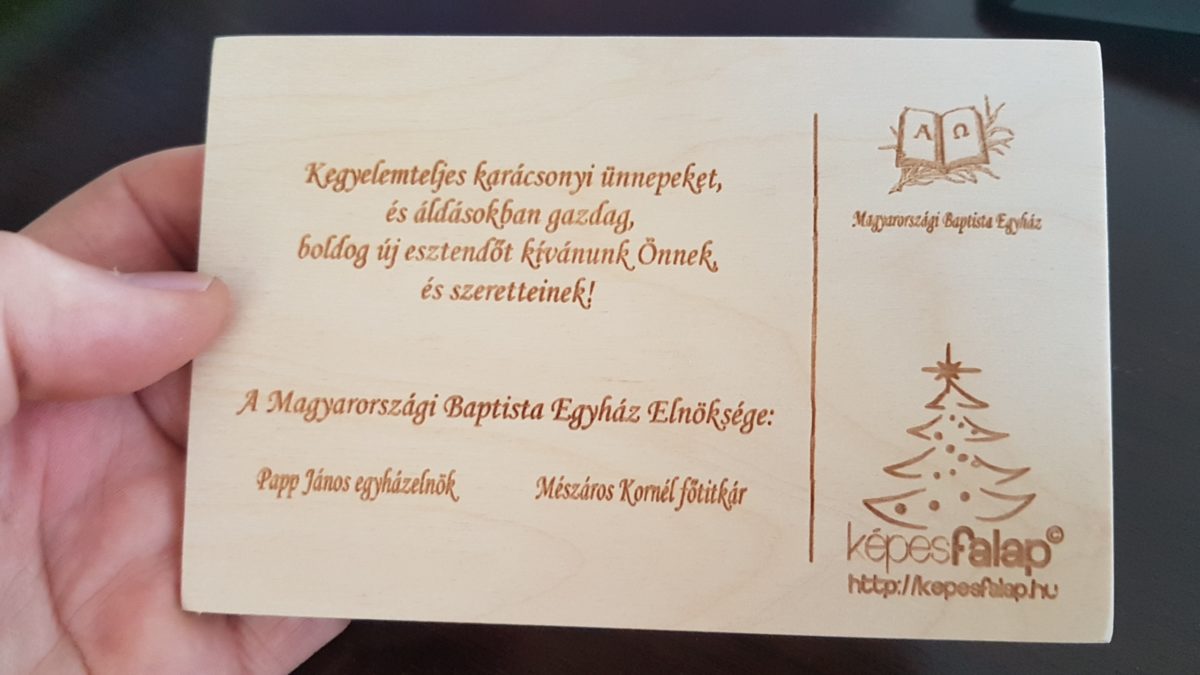 Kegyelemteljes karácsonyi ünnepeket,
és áldásokban gazdag,
boldog új esztendőt kívánunk Önnek,
és szeretteinek!
A Magyarországi Baptista Egyház Elnöksége:
Papp János egyházelnök
Mészáros Kornél főtitkár
Α Ω
Magyarországi Baptista Egyház
képesfalap©
http://kepesfalap.hu